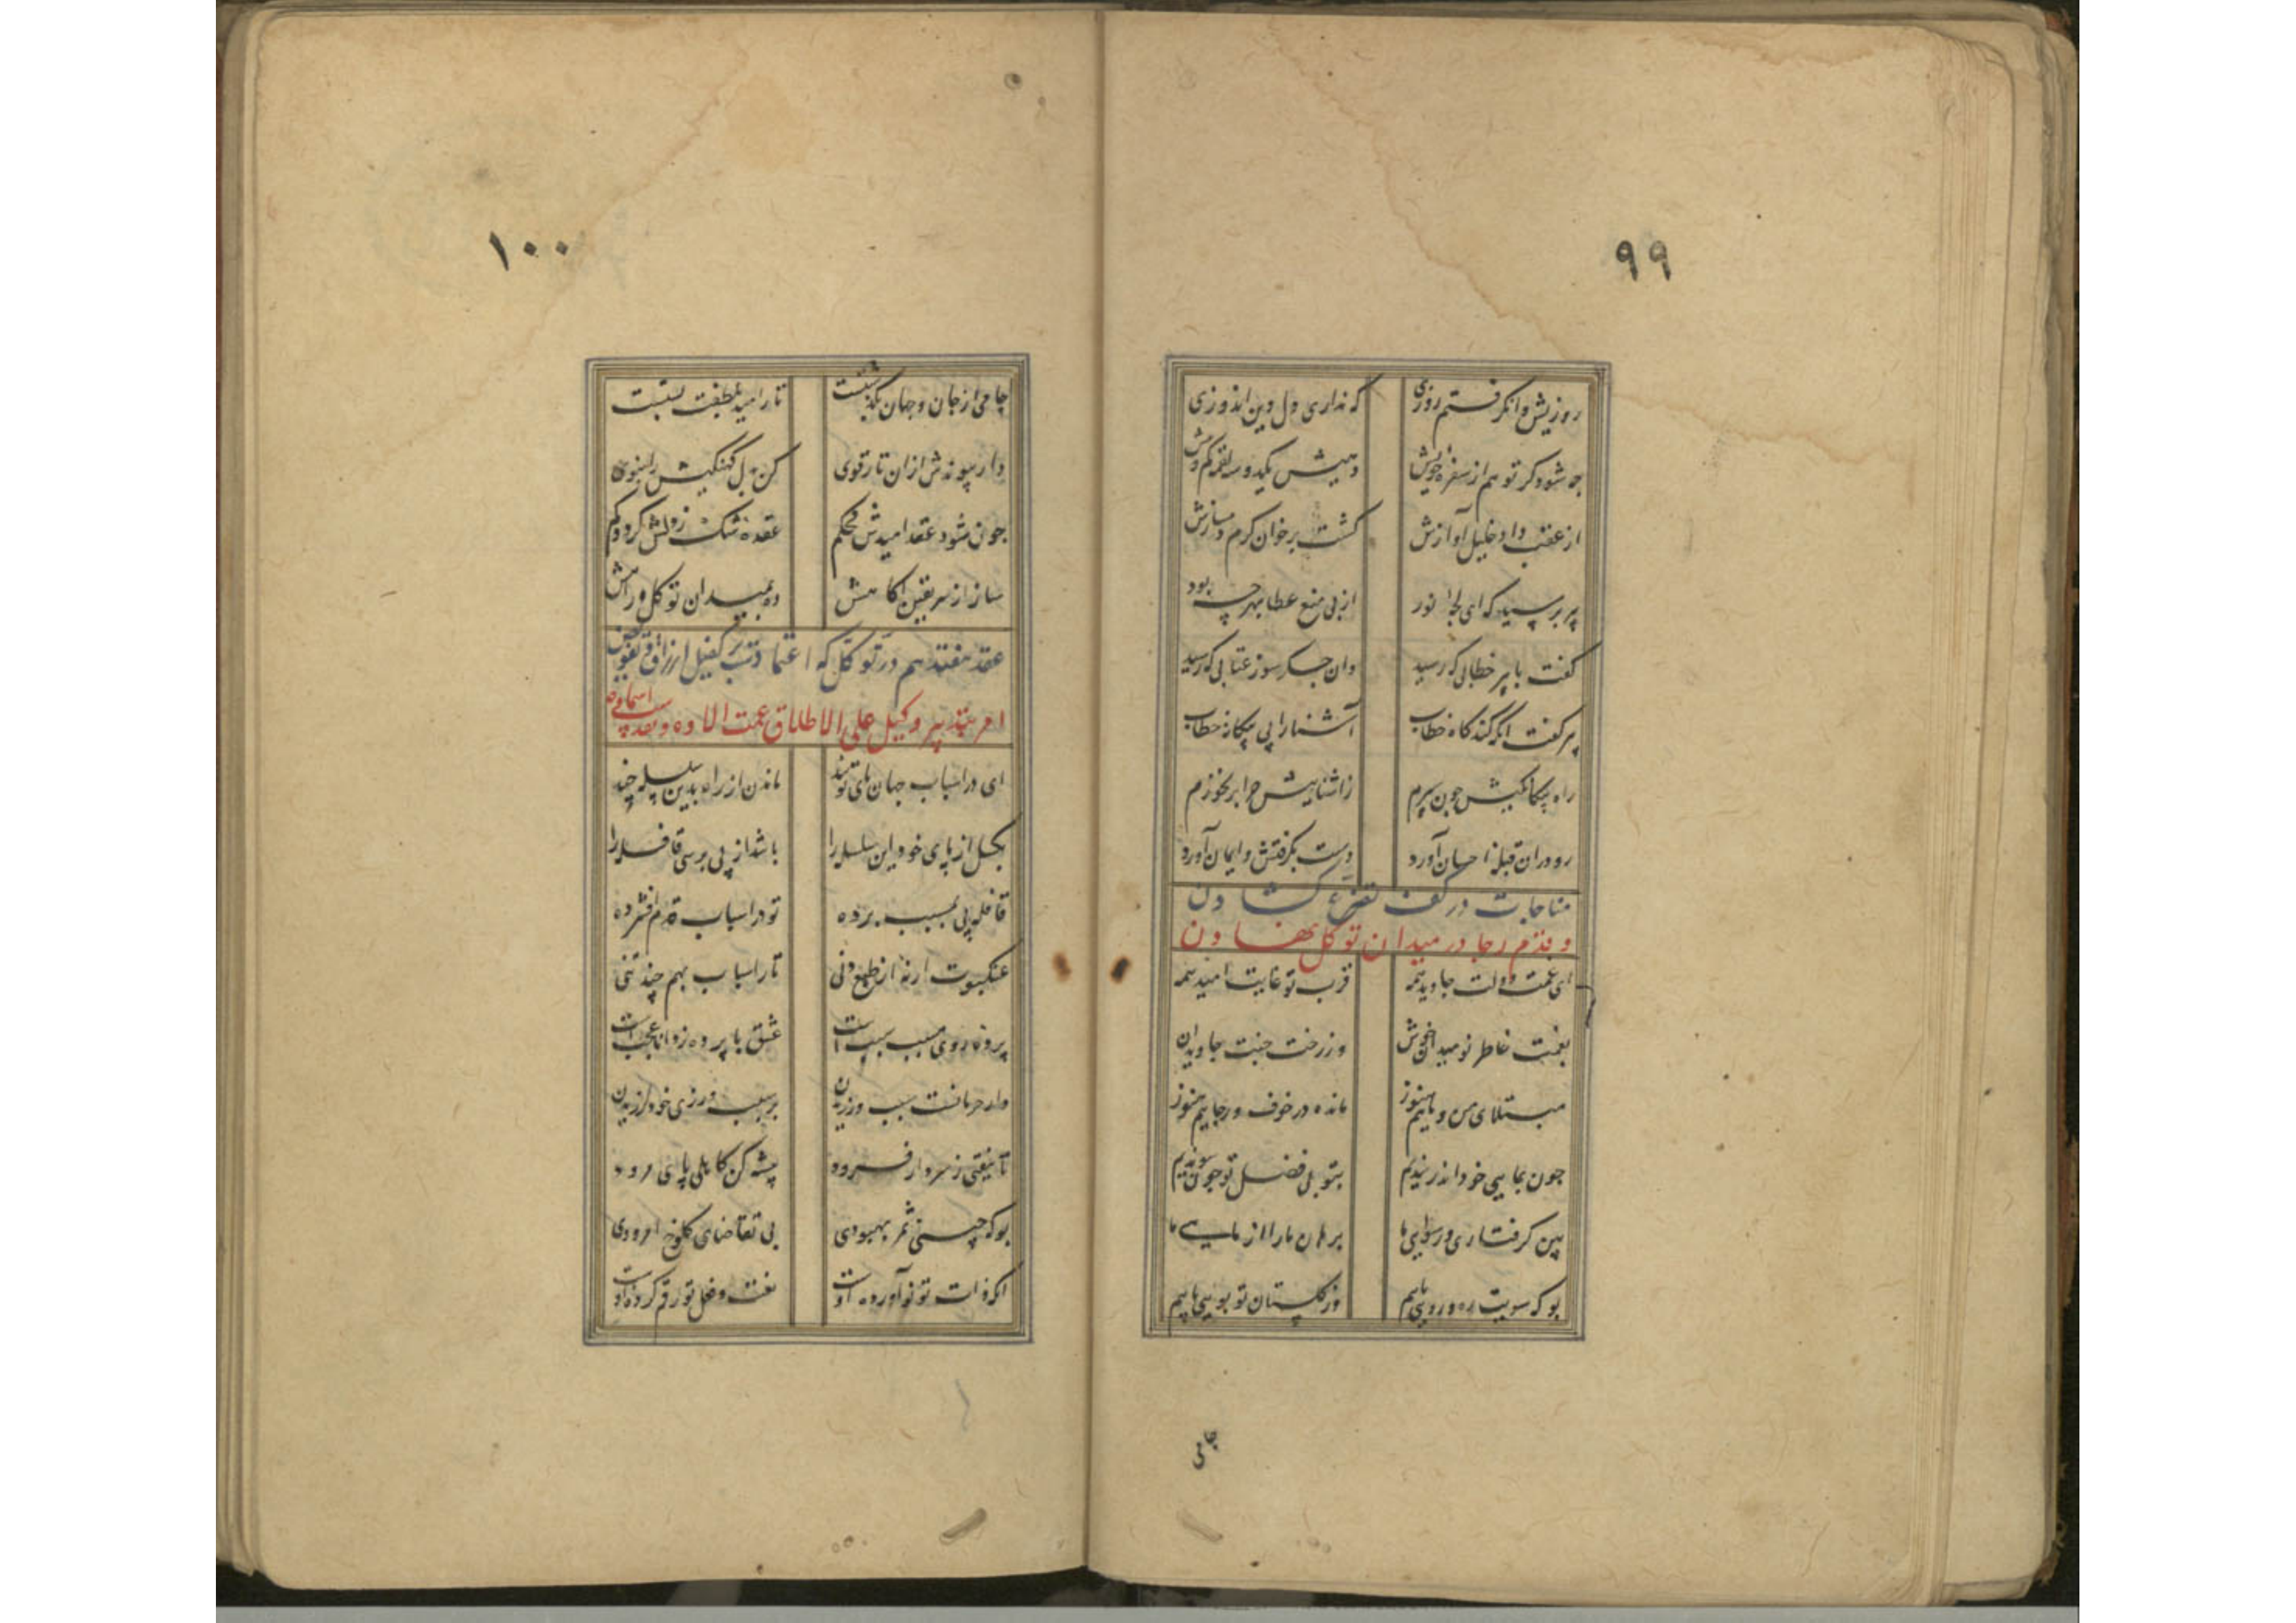 ۹۹
روزیش وانگرفتم روزی که نداری دل دین اندوزی
چه شود گر تو هم از سفره خویش دهیش یکدو سه لقمه کم و بیش
از عقب داد خلیل آوازش گشت بر خوان کرم دمسازش
پیر پرسید که ای لجه نور از پی منع عطا بهر چه بود
گفت با پیر خطابی که رسید وان جگر سوز عتابی که رسید
پیر گفت آنکه کند گاه خطاب آشنا را پی بیگانه خطاب
راه بیگانگیش چون سپرم ز آشناییش چرا بر نخورم
رو در آن قبله احسان آورد دست بگرفتش و ایمان آورد
مناجات در کف تضرع گشادن
و قدم رجا در میدان توکل نهادن
ای غمت دولت جاوید همه قرب تو غایت امید همه
بغمت خاطر نومیدان خوش وز رخت جنت جاویدان
مبتلای من و ماییم هنوز مانده در خوف و رجاییم هنوز
چون بمایی خود اندر بندیم بتو بی فضل تو چون پیوندیم
بین گرفتاری و رسوایی ما برهان ما را از مایی ما
بو که سویت ره و رویی یابیم وز گلستان تو بویی یابیم
جامی
۱۰۰
جامی از جان و جهان بگسست تار امید بلطفت بست
دار پیوندش از آن تار قوی کن بدل کهنگیش را بنوی
چون شود عقد امیدش محکم عقده شک ز دلش گردد کم
ساز از سر یقین آگاهش ده بمیدان توکل راهش
عقد هفتدهم در توکل که اعتماد تست بر کفیل ارزاق و تفویض
امر بتدبیر وکیل علی الاطلاق عمت الاوه و تقدست اسماوه
ای در اسباب جهان پای تو بند ماندن از راه بدین سلسله چند
بگسل از پای خود این سلسله را باشد از پی برسی قافله را
قافله پی بمسبب برده تو در اسباب قدم افشرده
عنکبوت ار نه از طبع دنی تار اسباب بهم چند تنی
پرده روی مسبب سبب است عشق با پرده ز دانا عجب است
دارد حرمانت سبب ورزیدن بر سبب ورزی خود لرزیدن
تا نیفتی ز سر دار فرود پیشه کن کاهلی پای مرود
بو که چینی ثمر بهبودی بی تقاضای کلوخ امرودی
آنکه ذات تو نو آورده اوست نعت و فعل تو رقم کرده اوست